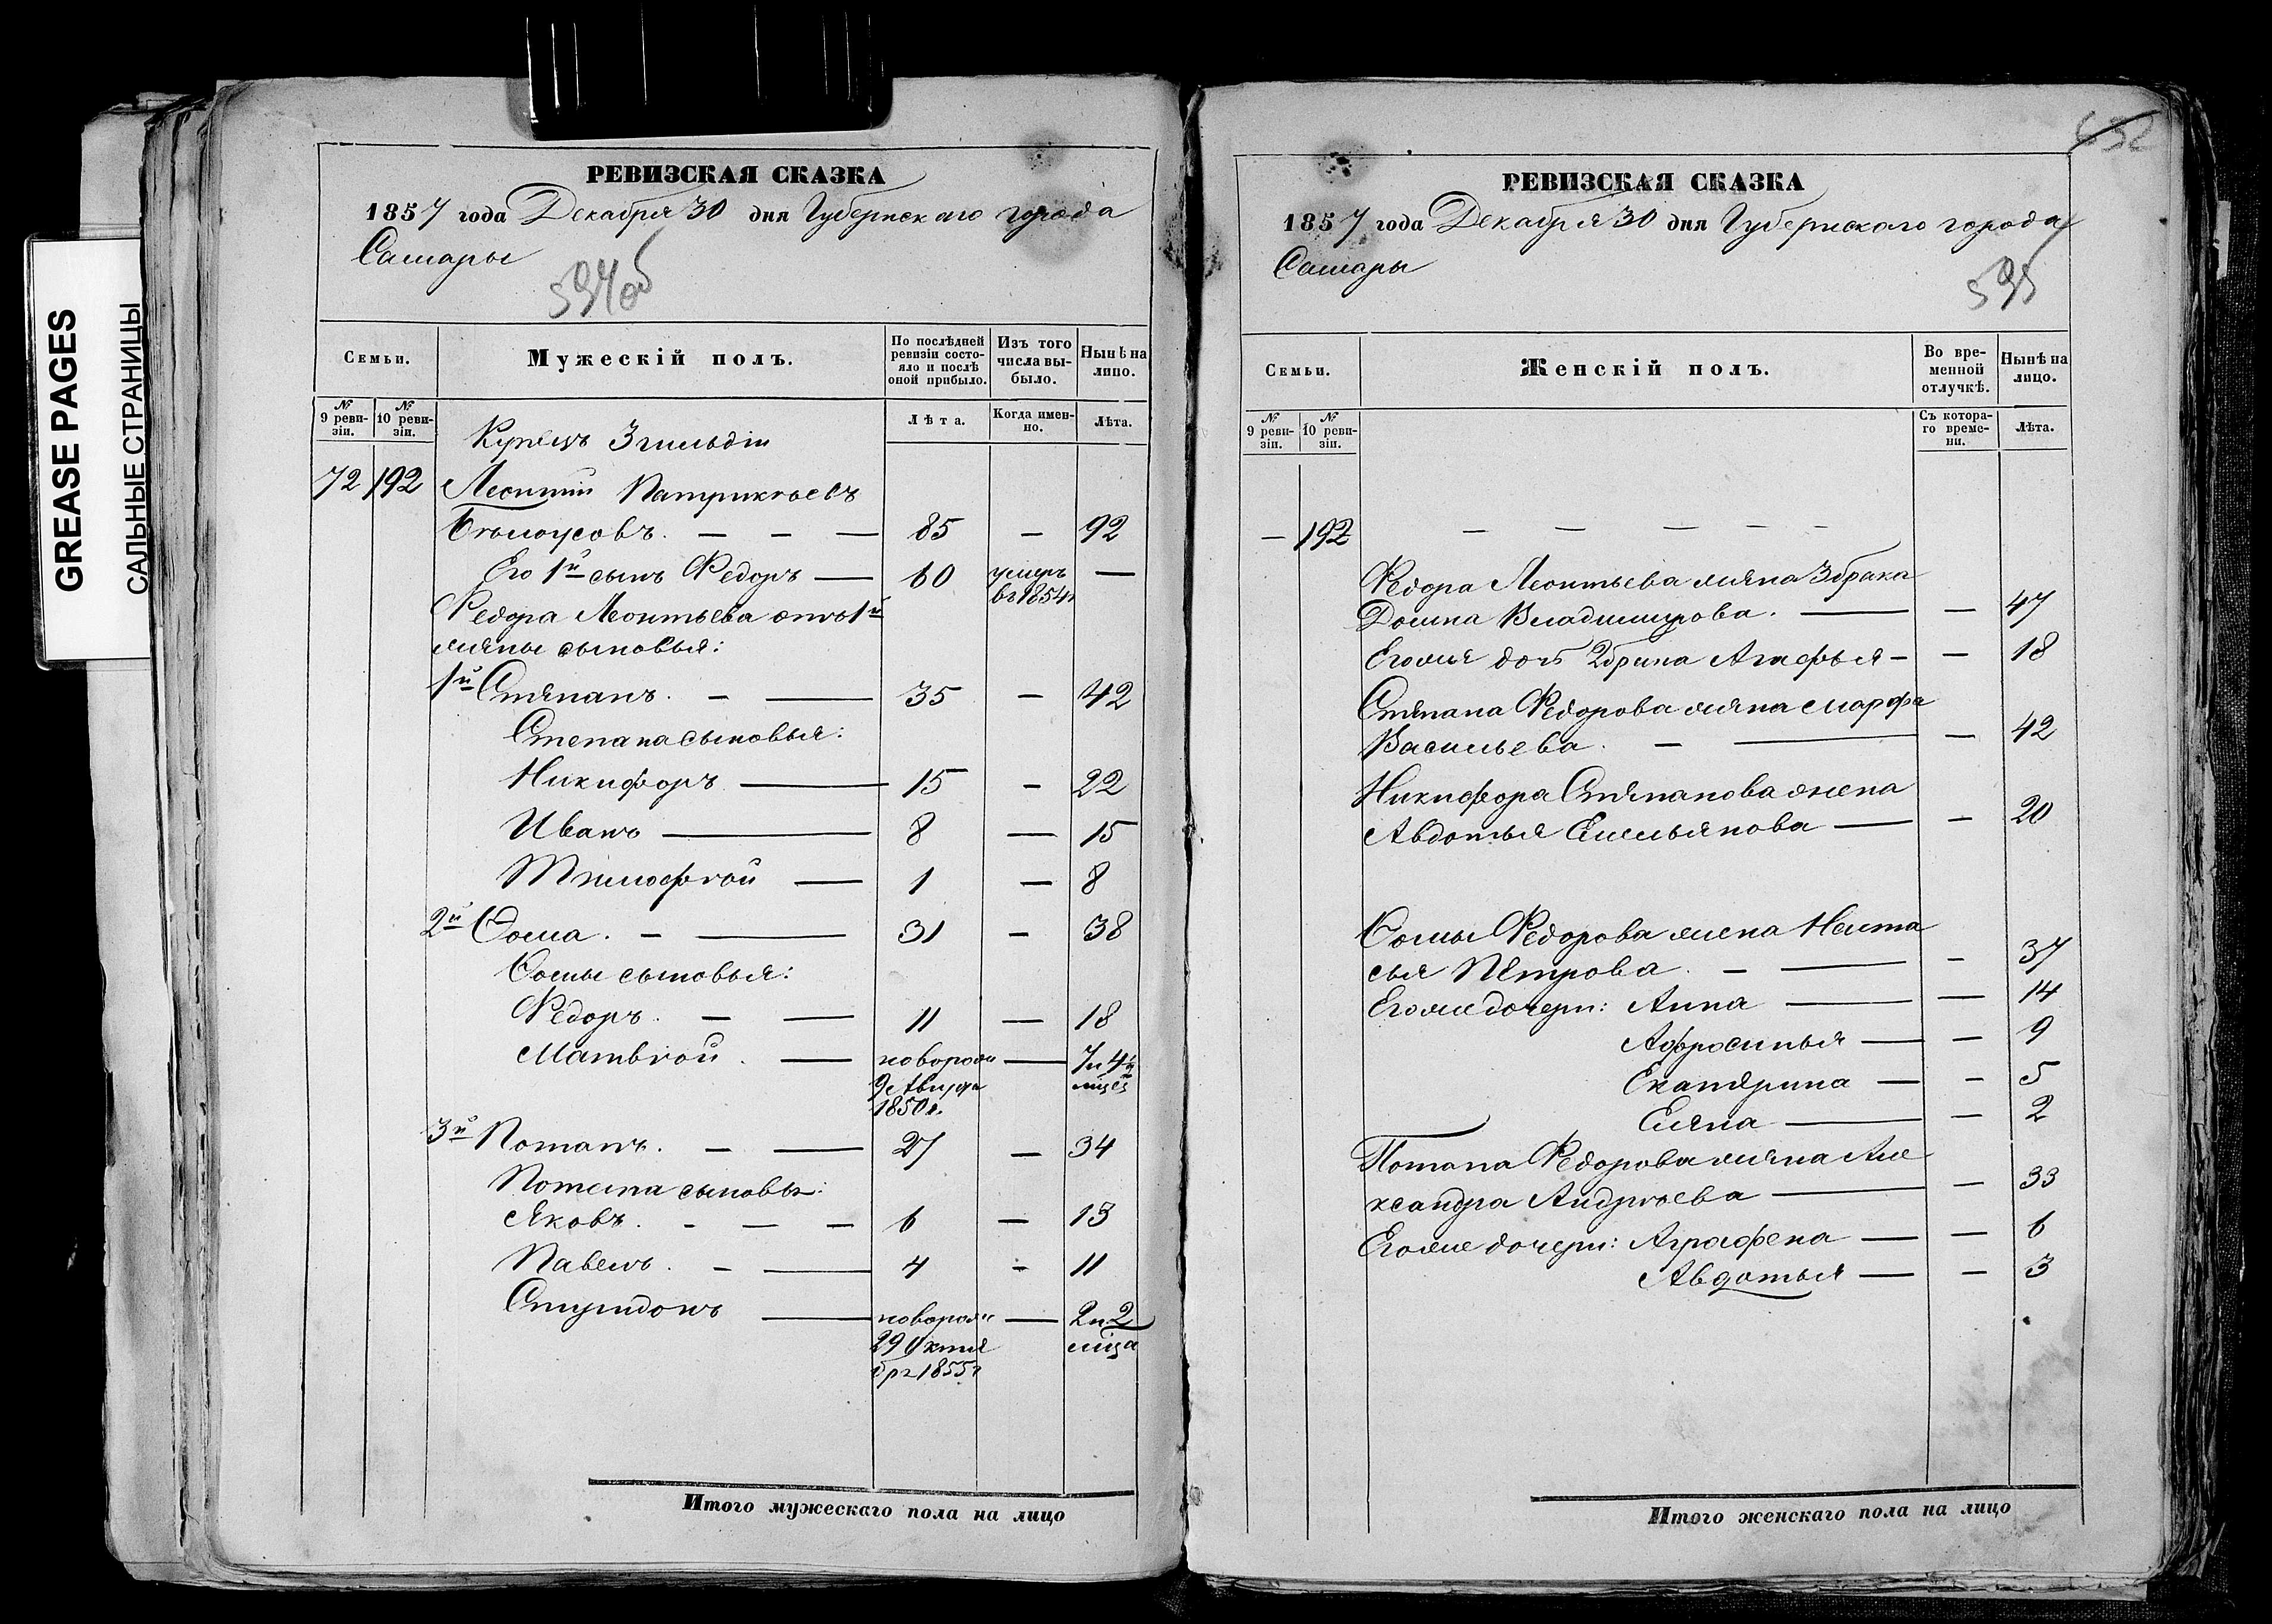 GREASE PAGES
САЛЬНЫЕ СТРАНИЦЫ
РЕВИЗСКАЯ СКАЗКА
1857 года Декабря 30 дня Губернскаго города
Самары
594об
Семьи.
Мужескій полъ.
По послѣдней ревизіи состояло и послѣ оной прибыло.
Изъ того числа выбыло.
Нынѣ на лицо.
№ 9 ревизіи.
№ 10 ревизіи.
Лѣта.
Когда именно.
Лѣта.
Купецъ 3 гильдіи
72 192 Леонтій Патрикѣевъ
Бѣлоусовъ. — — — 85 — 92
Его 1й сынъ Федоръ — 60 умеръ —
въ 1854г
Федора Леонтьева отъ 1й
жены сыновья:
1й Степанъ. — — 35 — 42
Степана сыновья:
Никифоръ — 15 — 22
Иванъ — 8 — 15
Тимофѣй — 1 — 8
2й Фома. — — 31 — 38
Фомы сыновья:
Федоръ. — — 11 — 18
Матвѣй. — новорож — 7 и 4
9 Августа мѣс
1850г.
3й Потапъ. — — 27 — 34
Потапа сыновья:
Яковъ. — — — 6 — 13
Павелъ. — — 4 — 11
Спиридонъ — новорож — 2 и 2
29 Октя мѣца
бря 1855г
Итого мужескаго пола на лицо
632
РЕВИЗСКАЯ СКАЗКА
1857 года Декабря 30 дня Губернскаго города
Самары
595
Семьи.
Женскій полъ.
Во временной отлучкѣ.
Нынѣ на лицо.
№ 9 ревизіи.
№ 10 ревизіи.
Съ котораго времени.
Лѣта.
— 192 — — — — —
Федора Леонтьева жена 3 брака
Домна Владимирова. — — 47
Его же дочь 2 брака Агафья — — 18
Степана Федорова жена Марфа
Васильева. — — — 42
Никифора Степанова жена
Авдотья Емельянова — — 20
Фомы Федорова жена Наста
сья Петрова. — — — 37
Его же дочери: Анна — — 14
Афросинья — — 9
Екатерина — — 5
Елена — — 2
Потапа Федорова жена Але
ксандра Андрѣева — — 33
Его же дочери: Аграфена — — 6
Авдотья — — 3
Итого женскаго пола на лицо